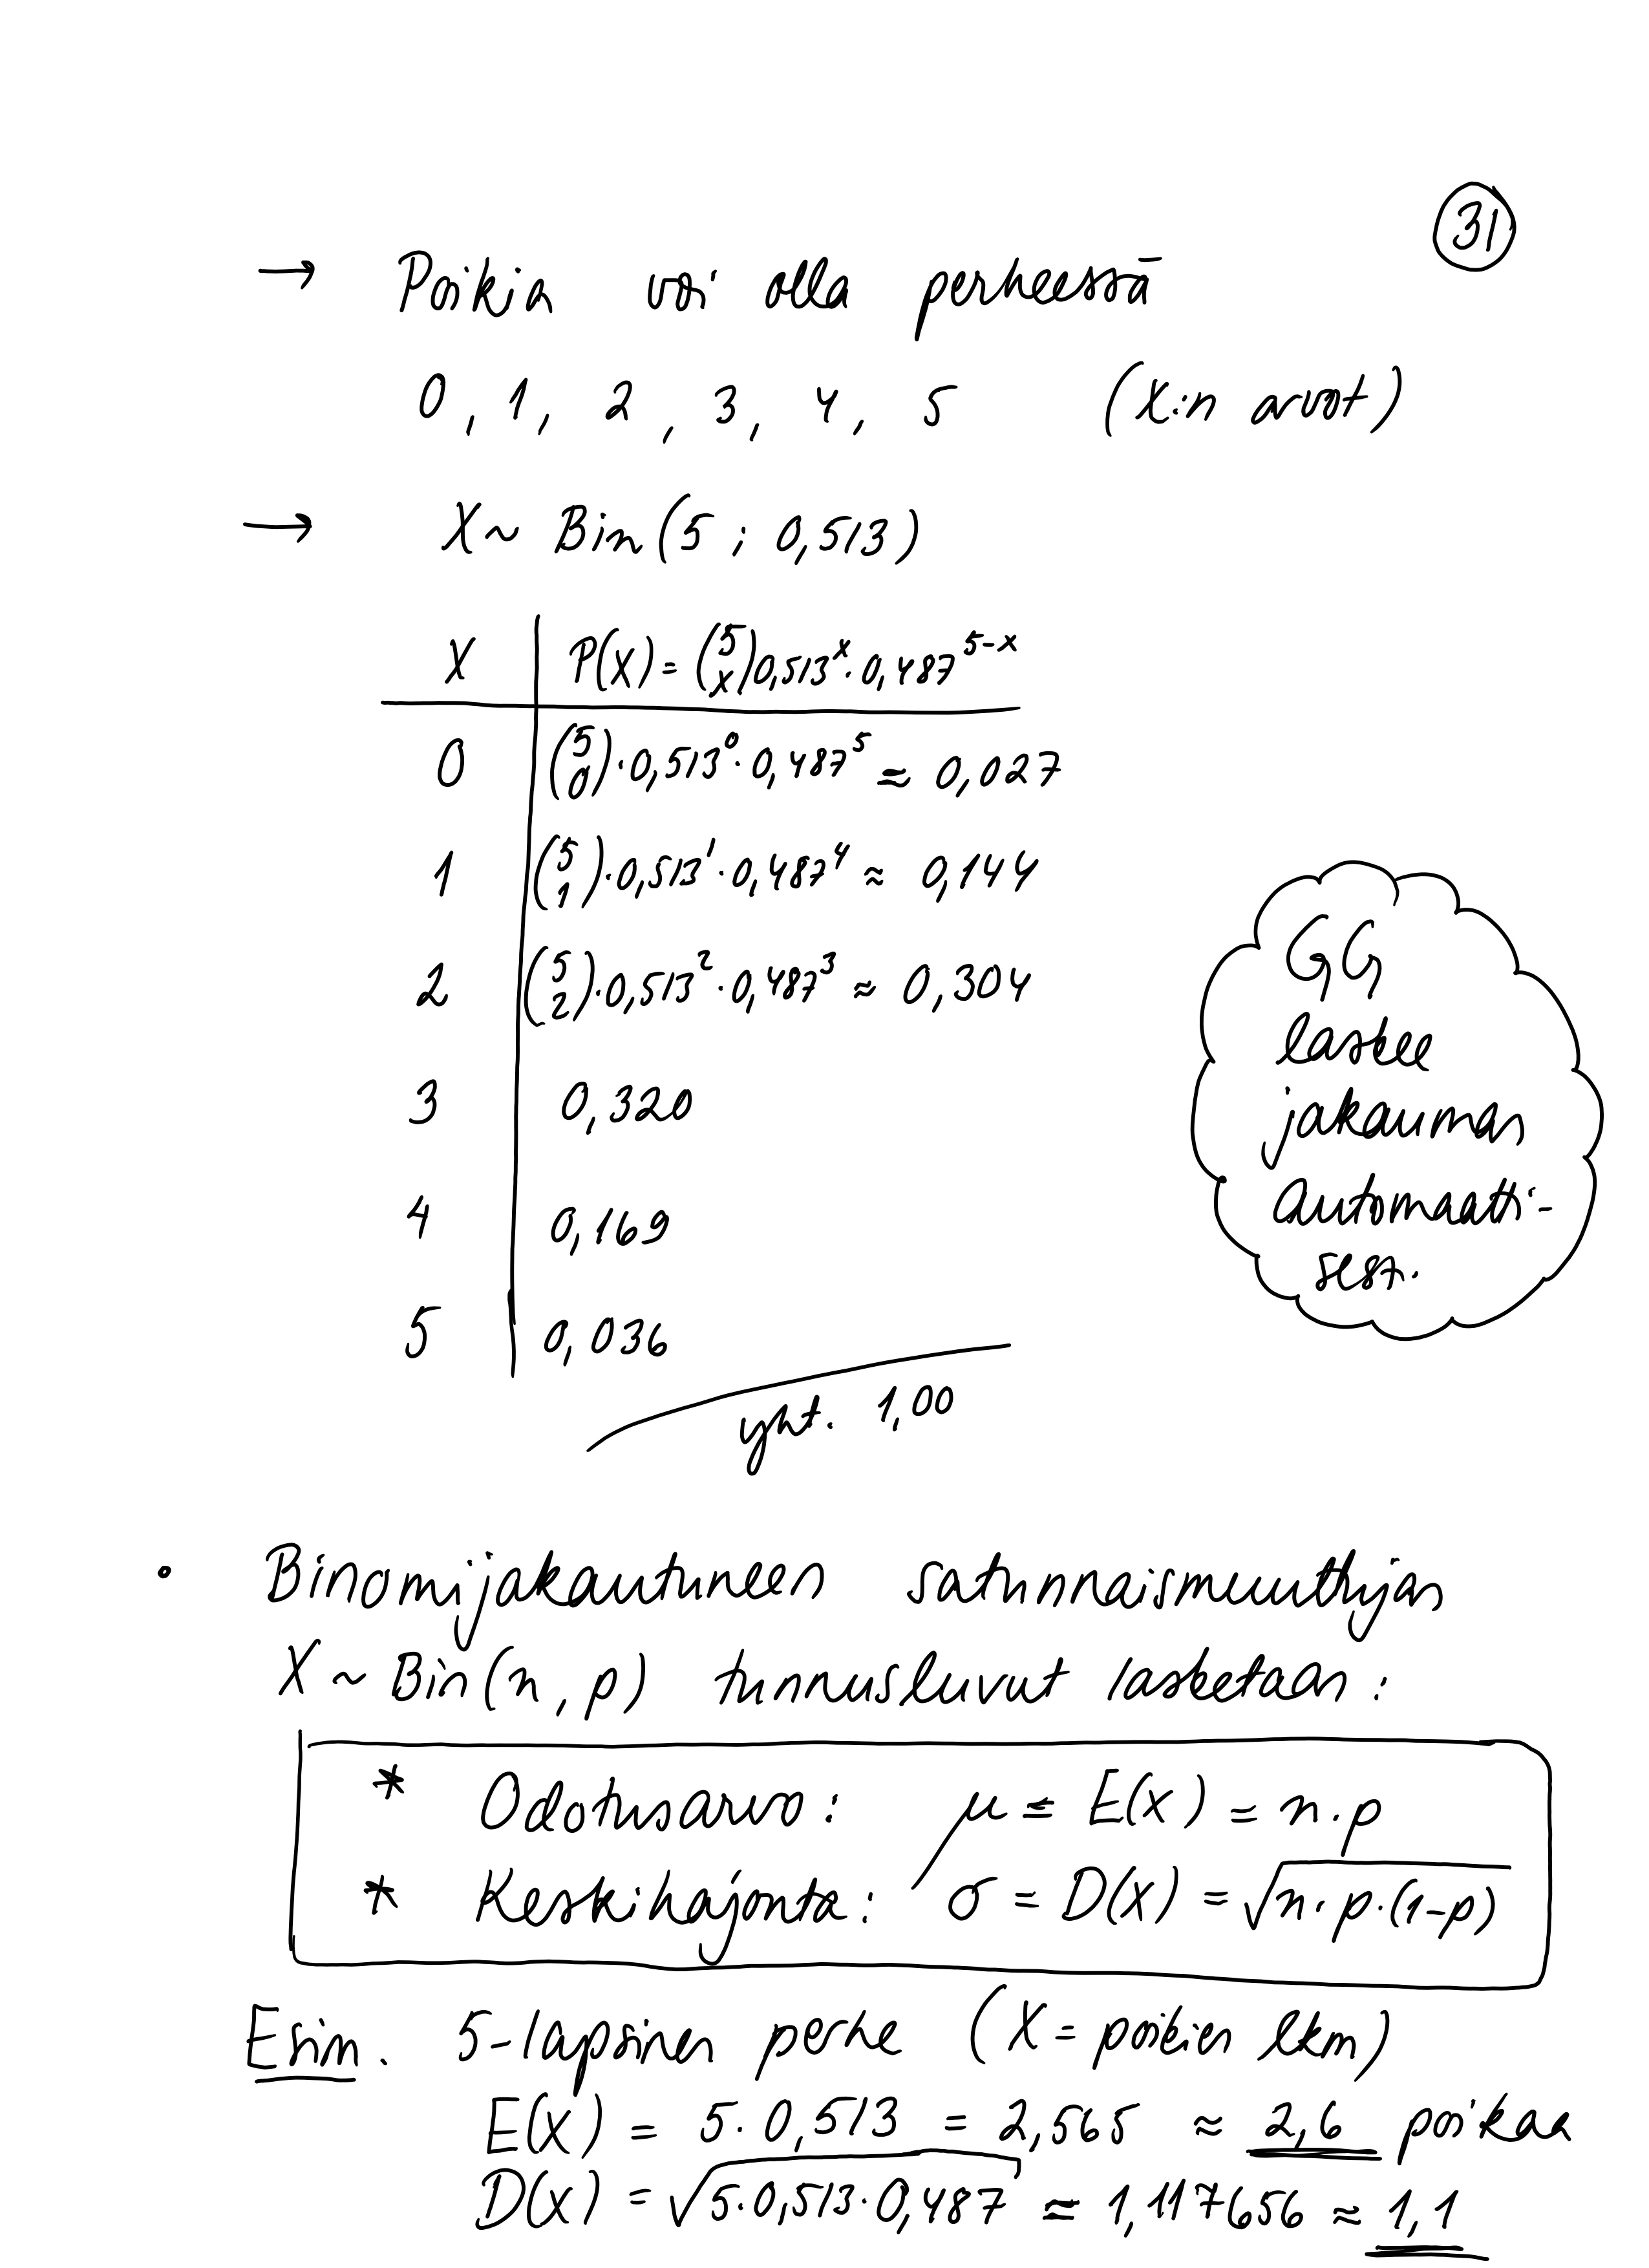 31
→ Poikia voi olla perheessä
0, 1, 2, 3, 4, 5 (X:n arvot)
→ X ~ Bin(5 ; 0,513)
X | P(X) = (5 x) 0,513^x · 0,487^(5-x)
0 | (5 0) · 0,513^0 · 0,487^5 ≈ 0,027
1 | (5 1) · 0,513^1 · 0,487^4 ≈ 0,144
2 | (5 2) · 0,513^2 · 0,487^3 ≈ 0,304
3 | 0,320
4 | 0,169
5 | 0,036
yht. 1,00
GG
laskee
jakauman
automaatti-
sest.
• Binomijakautuneen satunnaismuuttujan
X ~ Bin(n, p) tunnusluvut lasketaan:
* Odotusarvo: μ = E(X) = n·p
* Keskihajonta: σ = D(X) = √(n·p·(1-p))
Esim. 5-lapsinen perhe (X = poikien lkm)
E(X) = 5·0,513 = 2,565 ≈ 2,6 poikaa
D(X) = √(5·0,513·0,487) ≈ 1,117656 ≈ 1,1